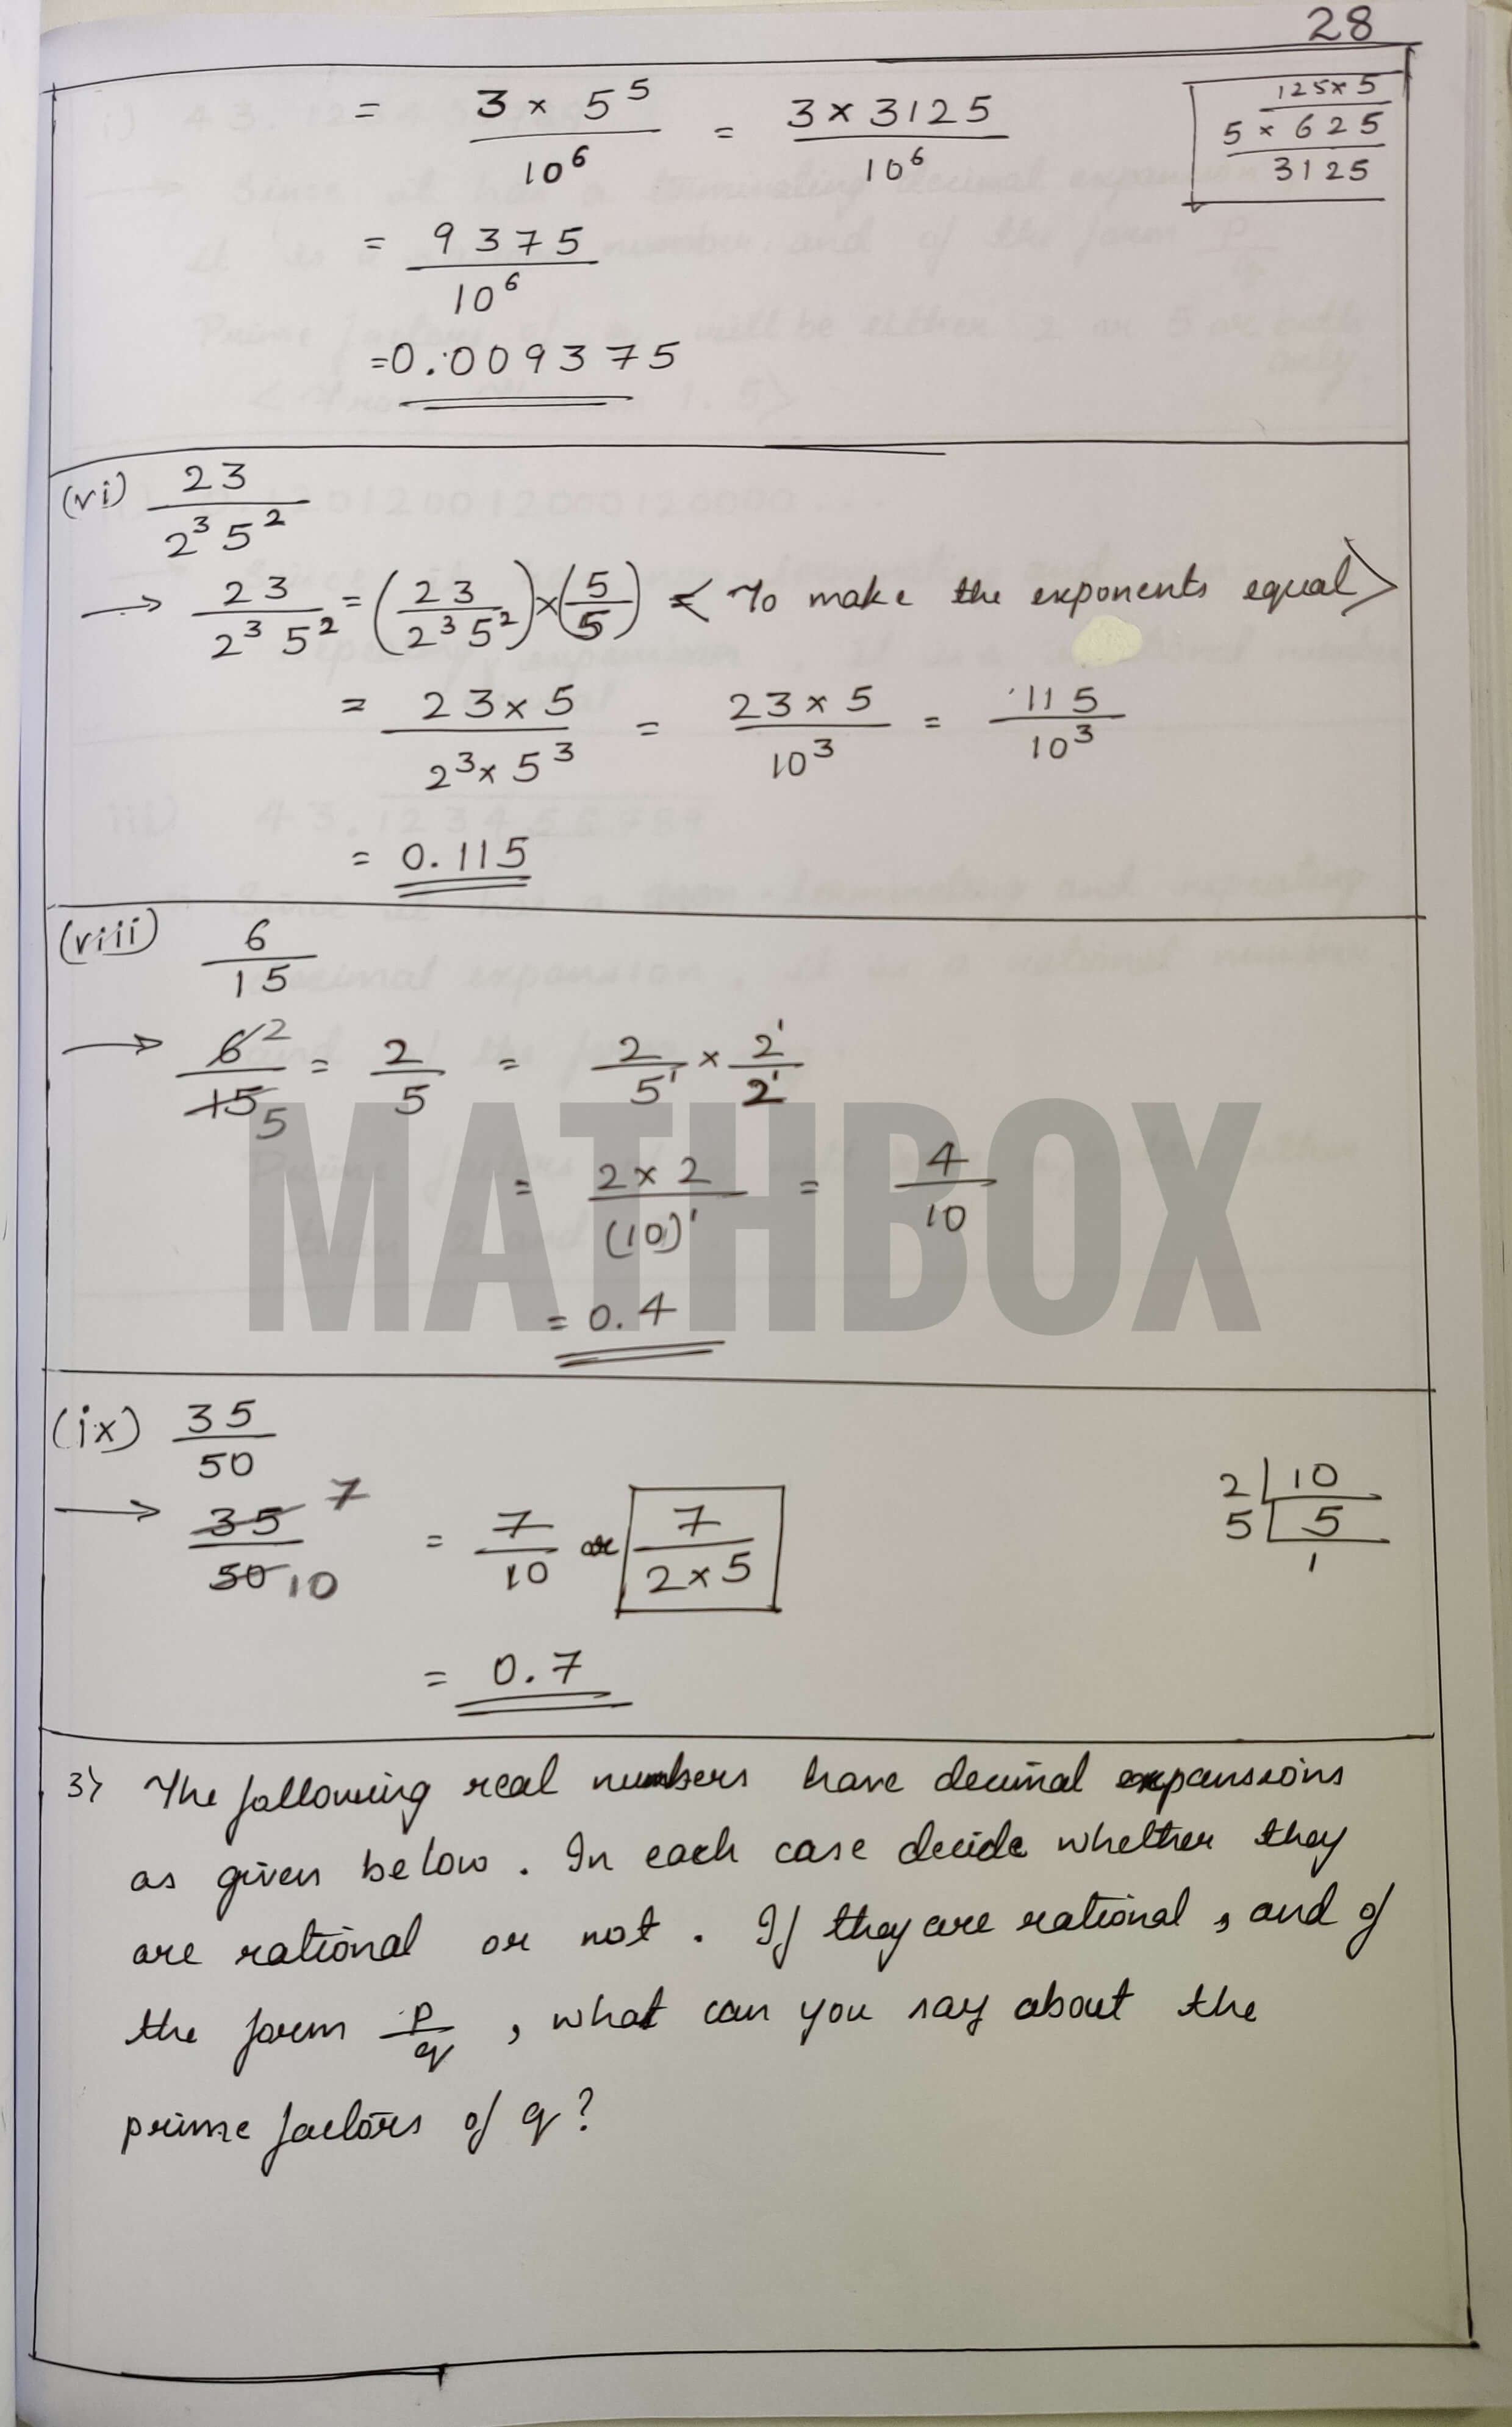 28
= 3 × 5⁵ / 10⁶ = 3 × 3125 / 10⁶
125 × 5
5 × 625
3125
= 9375 / 10⁶
= 0.009375
(vi) 23 / 2³ 5²
→ 23 / 2³ 5² = (23 / 2³ 5²) × (5 / 5) < To make the exponents equal >
= 23 × 5 / 2³ × 5³ = 23 × 5 / 10³ = 115 / 10³
= 0.115
(viii) 6 / 15
→ 6 2 / 15 5 = 2 / 5 = 2 / 5¹ × 2¹ / 2¹
= 2 × 2 / (10)¹ = 4 / 10
MATHBOX
= 0.4
(ix) 35 / 50
→ 35 7 / 50 10 = 7 / 10 or 7 / 2 × 5
2 | 10
5 | 5
1
= 0.7
3) The following real numbers have decimal expansions
as given below. In each case decide whether they
are rational or not. If they are rational, and of
the form p / q, what can you say about the
prime factors of q?